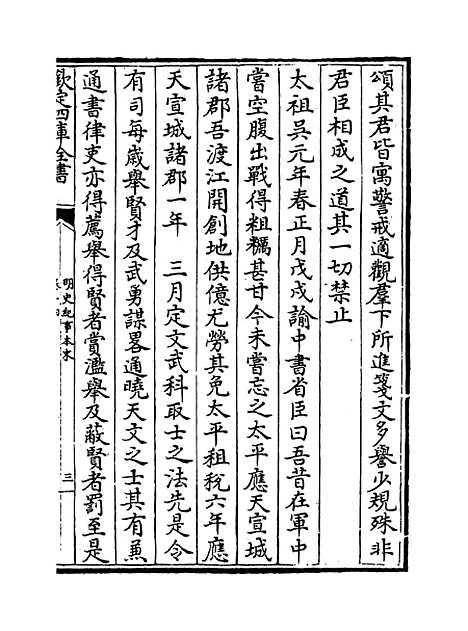 頌其君皆寓警戒適觀羣下所進箋文多譽少規殊非
君臣相成之道其一切禁止
太祖吳元年春正月戊戌諭中書省臣曰吾昔在軍中
當空腹出戰得粗糲甚甘今未嘗忘之太平應天宣城
諸郡吾渡江開創地供億尤勞其免太平租稅六年應
天宣城諸郡一年　三月定文武科取士之法先是令
有司每歲舉賢才及武勇謀畧通曉天文之士其有兼
通書律吏亦得薦舉得賢者賞濫舉及蔽賢者罰至是
欽定四庫全書
明史紀事本末
卷十四
三